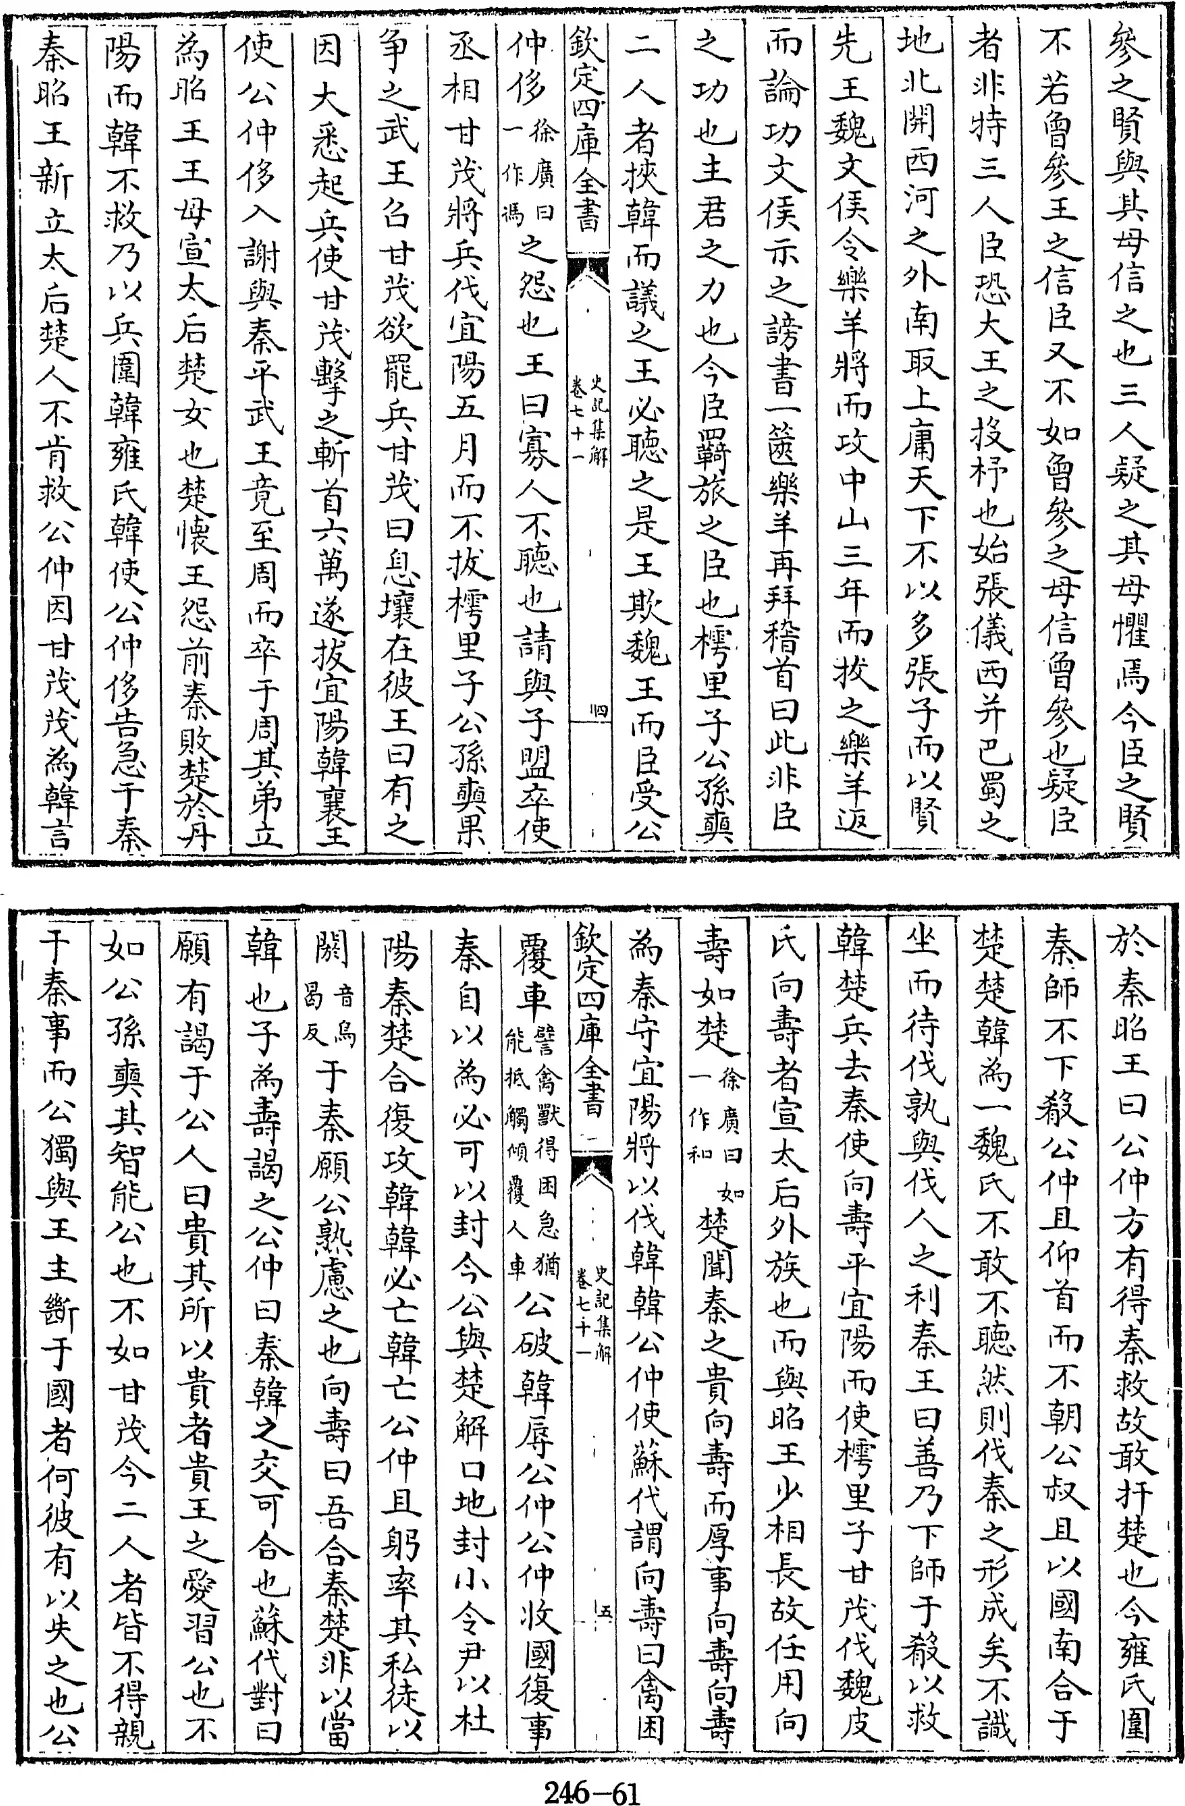 參之賢與其母信之也三人疑之其母懼焉今臣之賢
不若曾參王之信臣又不如曾參之母信曾參也疑臣
者非特三人臣恐大王之投杼也始張儀西并巴蜀之
地北開西河之外南取上庸天下不以多張子而以賢
先王魏文侯令樂羊將而攻中山三年而拔之樂羊返
而論功文侯示之謗書一篋樂羊再拜稽首曰此非臣
之功也主君之力也今臣羇旅之臣也樗里子公孫奭
二人者挾韓而議之王必聽之是王欺魏王而臣受公
欽定四庫全書
史記集解
卷七十一
四
仲侈徐廣曰一作馮之怨也王曰寡人不聽也請與子盟卒使
丞相甘茂將兵伐宜陽五月而不拔樗里子公孫奭果
爭之武王召甘茂欲罷兵甘茂曰息壤在彼王曰有之
因大悉起兵使甘茂擊之斬首六萬遂拔宜陽韓襄王
使公仲侈入謝與秦平武王竟至周而卒于周其弟立
為昭王王母宣太后楚女也楚懷王怨前秦敗楚於丹
陽而韓不救乃以兵圍韓雍氏韓使公仲侈告急于秦
秦昭王新立太后楚人不肯救公仲因甘茂茂為韓言
於秦昭王曰公仲方有得秦救故敢扞楚也今雍氏圍
秦師不下殽公仲且仰首而不朝公叔且以國南合于
楚楚韓為一魏氏不敢不聽然則伐秦之形成矣不識
坐而待伐孰與伐人之利秦王曰善乃下師于殽以救
韓楚兵去秦使向壽平宜陽而使樗里子甘茂伐魏皮
氏向壽者宣太后外族也而與昭王少相長故任用向
壽如楚徐廣曰如一作和楚聞秦之貴向壽而厚事向壽向壽
為秦守宜陽將以伐韓韓公仲使蘇代謂向壽曰禽困
欽定四庫全書
史記集解
卷七十一
五
覆車譬禽獸得困急猶能抵觸傾覆人車公破韓辱公仲公仲收國復事
秦自以為必可以封今公與楚解口地封小令尹以杜
陽秦楚合復攻韓韓必亡韓亡公仲且躬率其私徒以
閼音烏曷反于秦願公熟慮之也向壽曰吾合秦楚非以當
韓也子為壽謁之公仲曰秦韓之交可合也蘇代對曰
願有謁于公人曰貴其所以貴者貴王之愛習公也不
如公孫奭其智能公也不如甘茂今二人者皆不得親
于秦事而公獨與王主斷于國者何彼有以失之也公
246-61